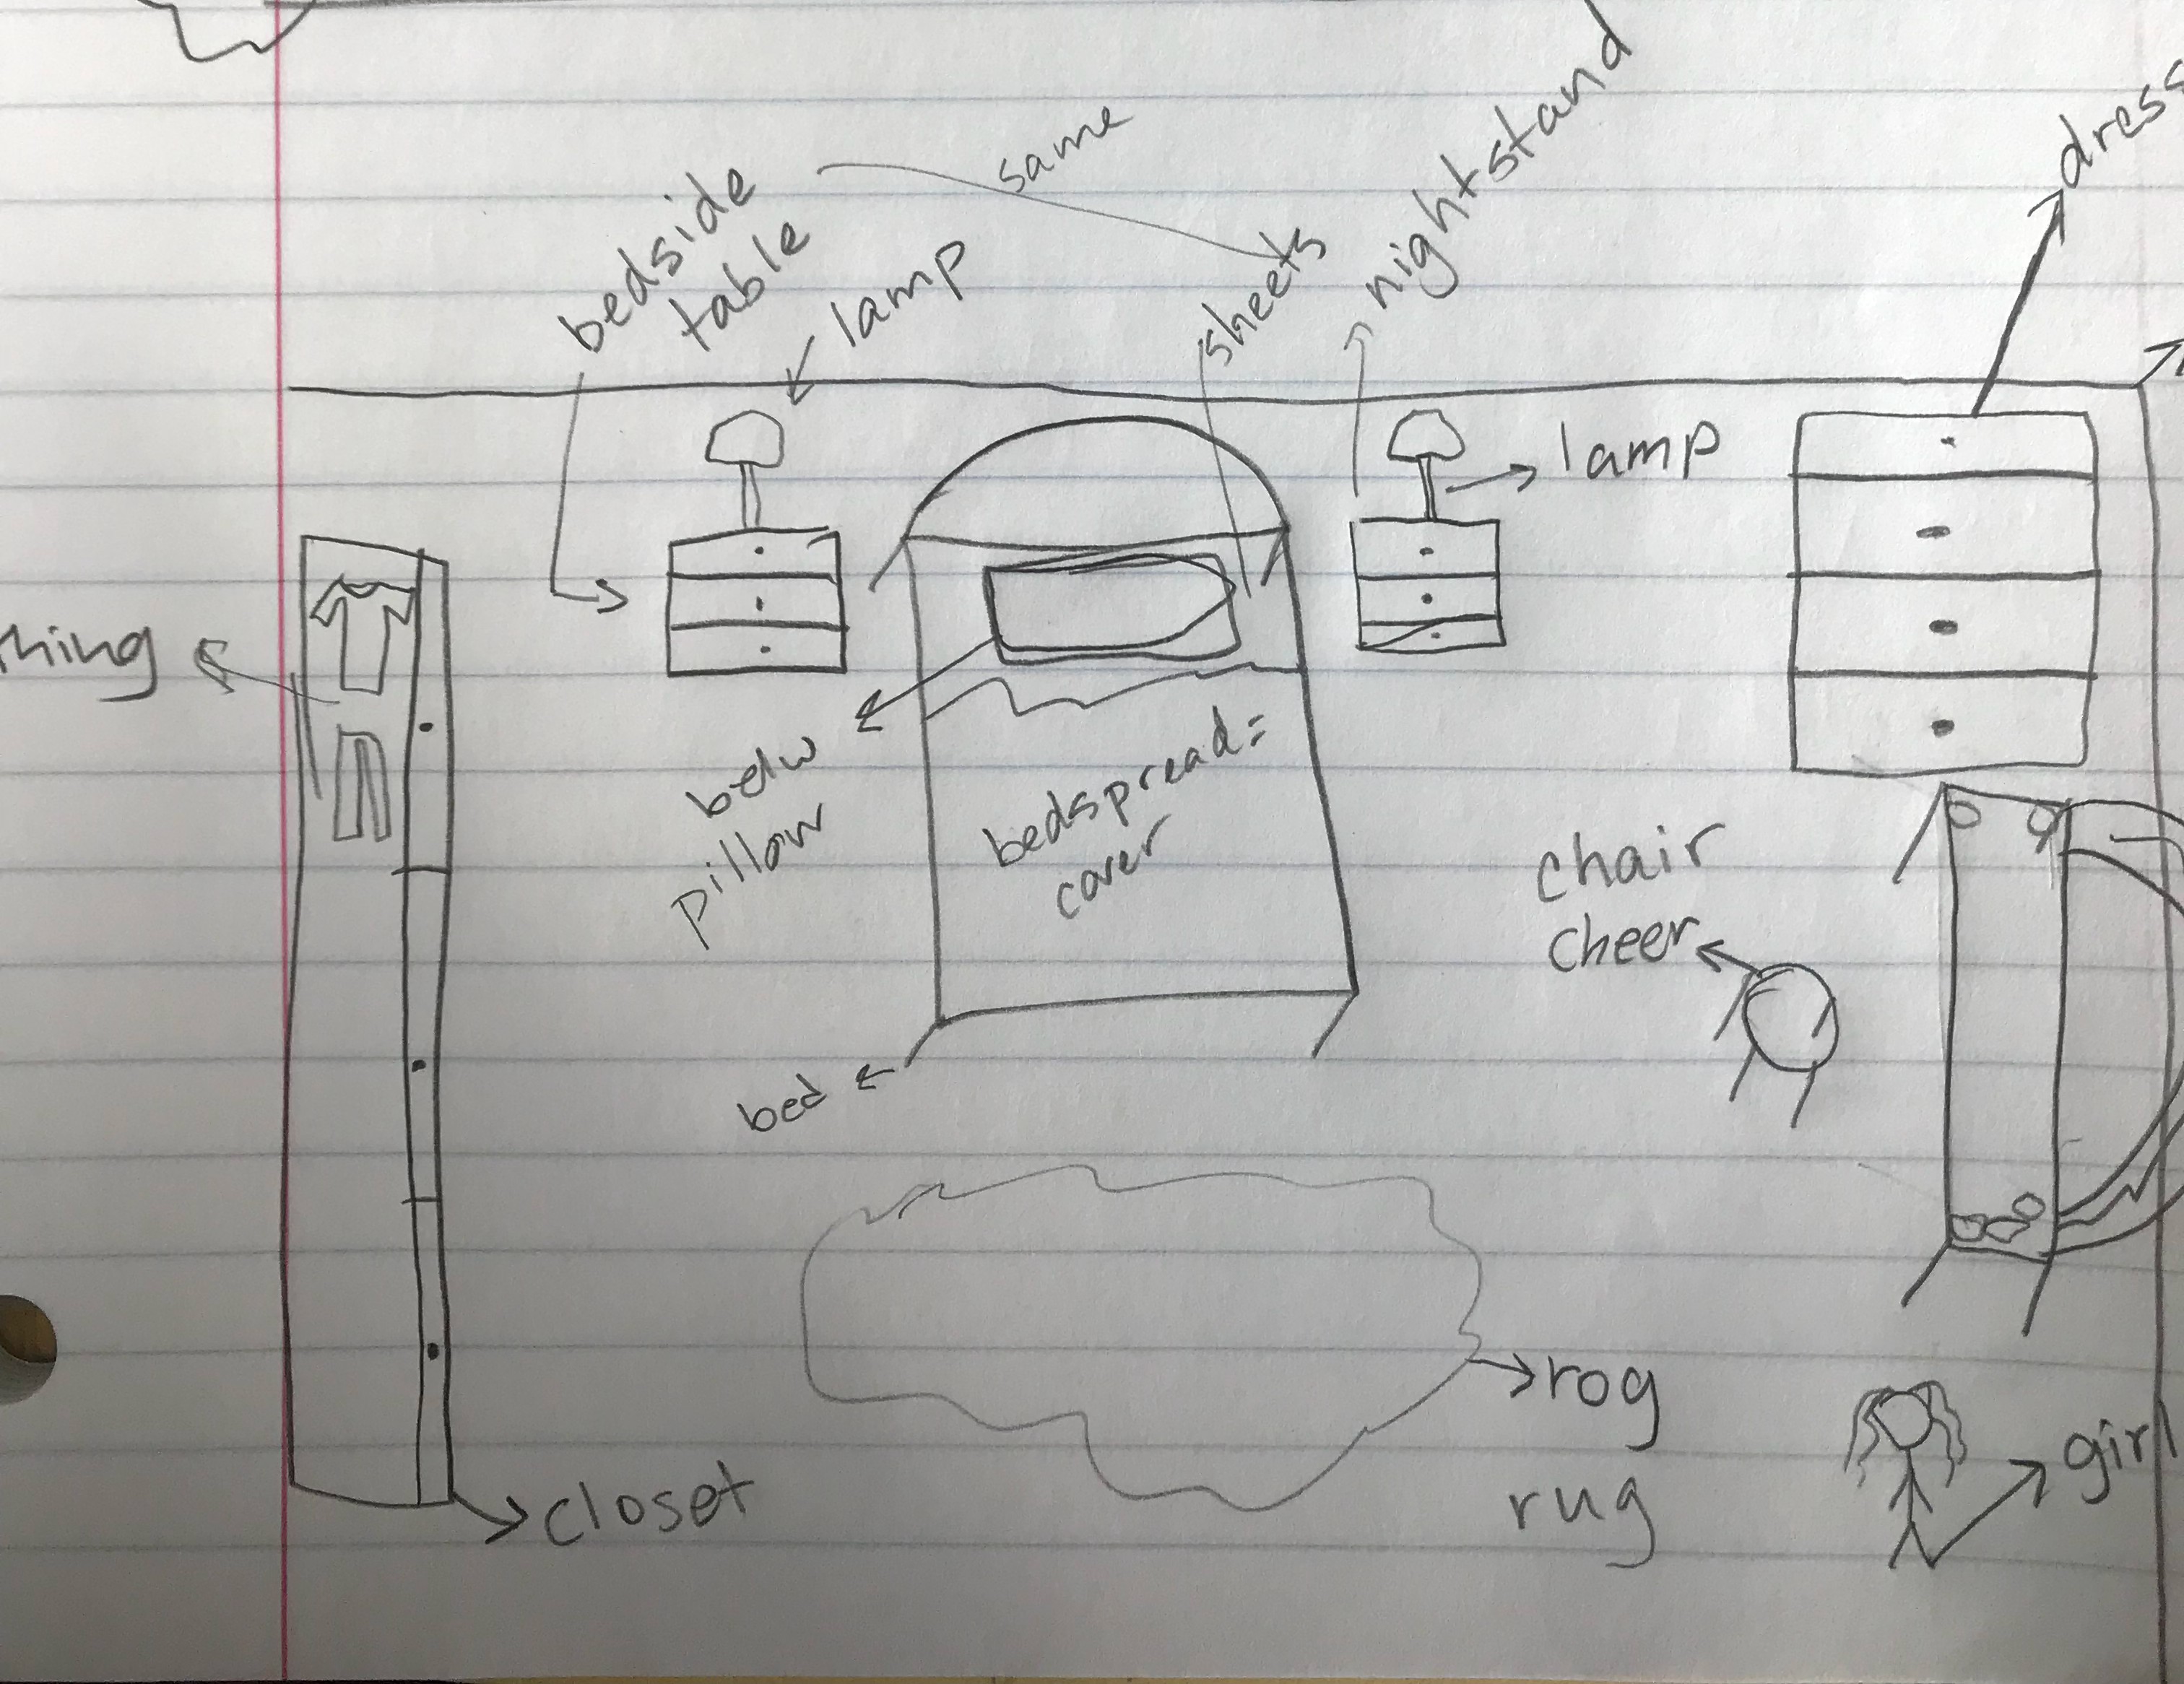 same
bedside
table
lamp
sheets
nightstand
dress
lamp
thing
below
pillow
bedspread =
cover
chair
cheer
bed
rog
rug
closet
girl